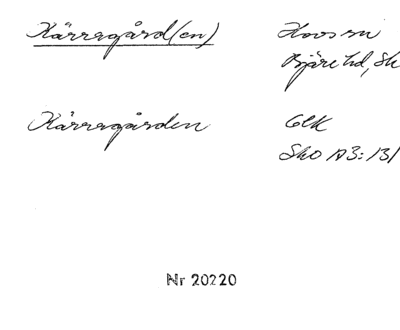 Kärragård(en) Hovs sn
Bjäre hd, Sk
Kärragården GEK
SkO A3: 131
Nr 20220